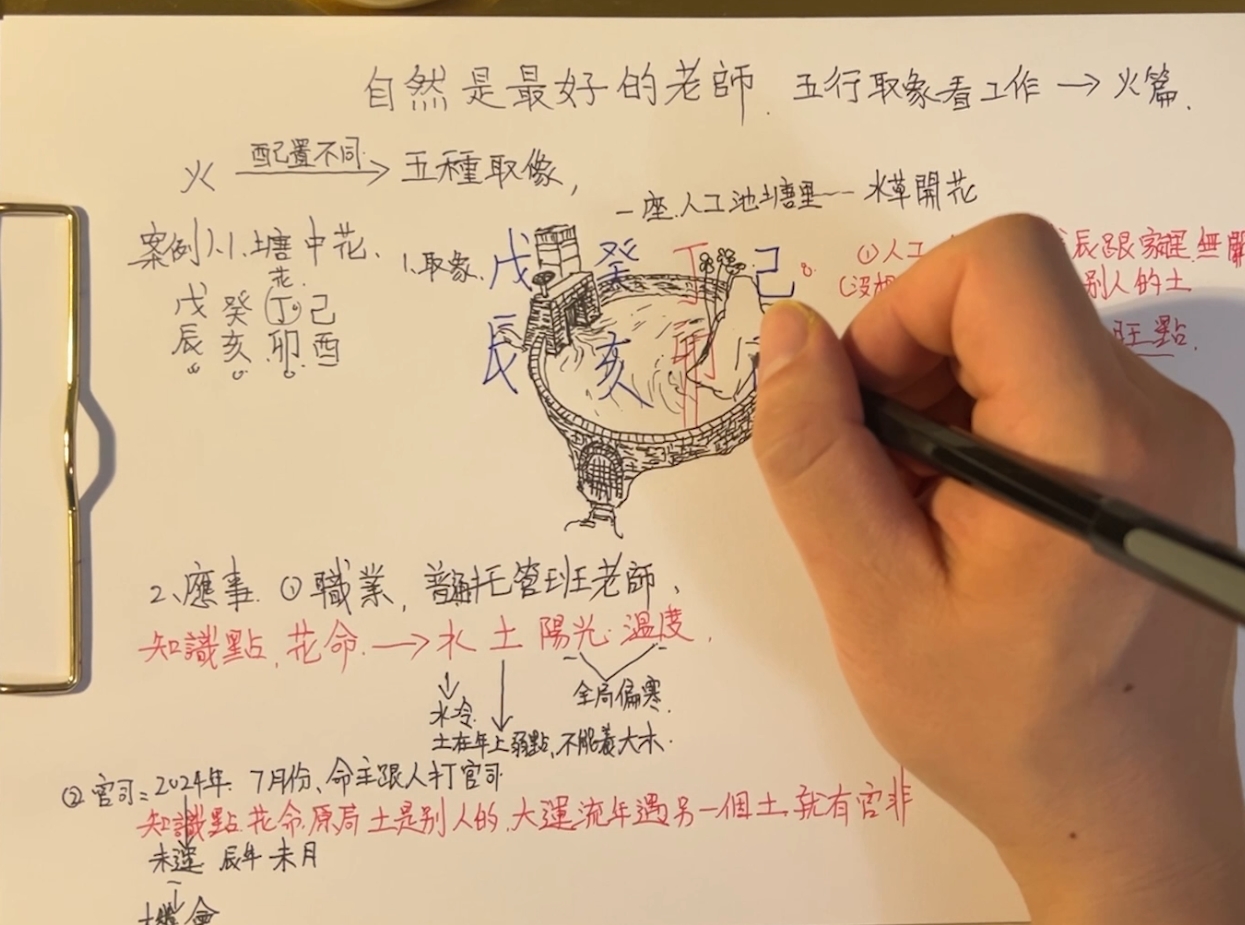 自然是最好的老師. 五行取象看工作 → 火篇.
火 配置不同 → 五種取像,
一座.人工池塘里 水草開花
案例1、1.塘中花.
花.
戊 癸 丁 己
辰 亥 卯 酉
1.取象.
戊 癸 丁 己
辰 亥 卯
①人工 辰跟家裡.無關
別人的土
旺點.
2、應事. ①職業, 普通托管班老師、
知識點.花命.→水 土 陽光.溫度.
水冷. 全局偏寒.
土在年上弱點,不能養大木.
②官司:2024年. 7月份、命主跟人打官司
知識點.花命.原局土是別人的,大運流年遇另一個土.就有官非
未運 辰年 未月